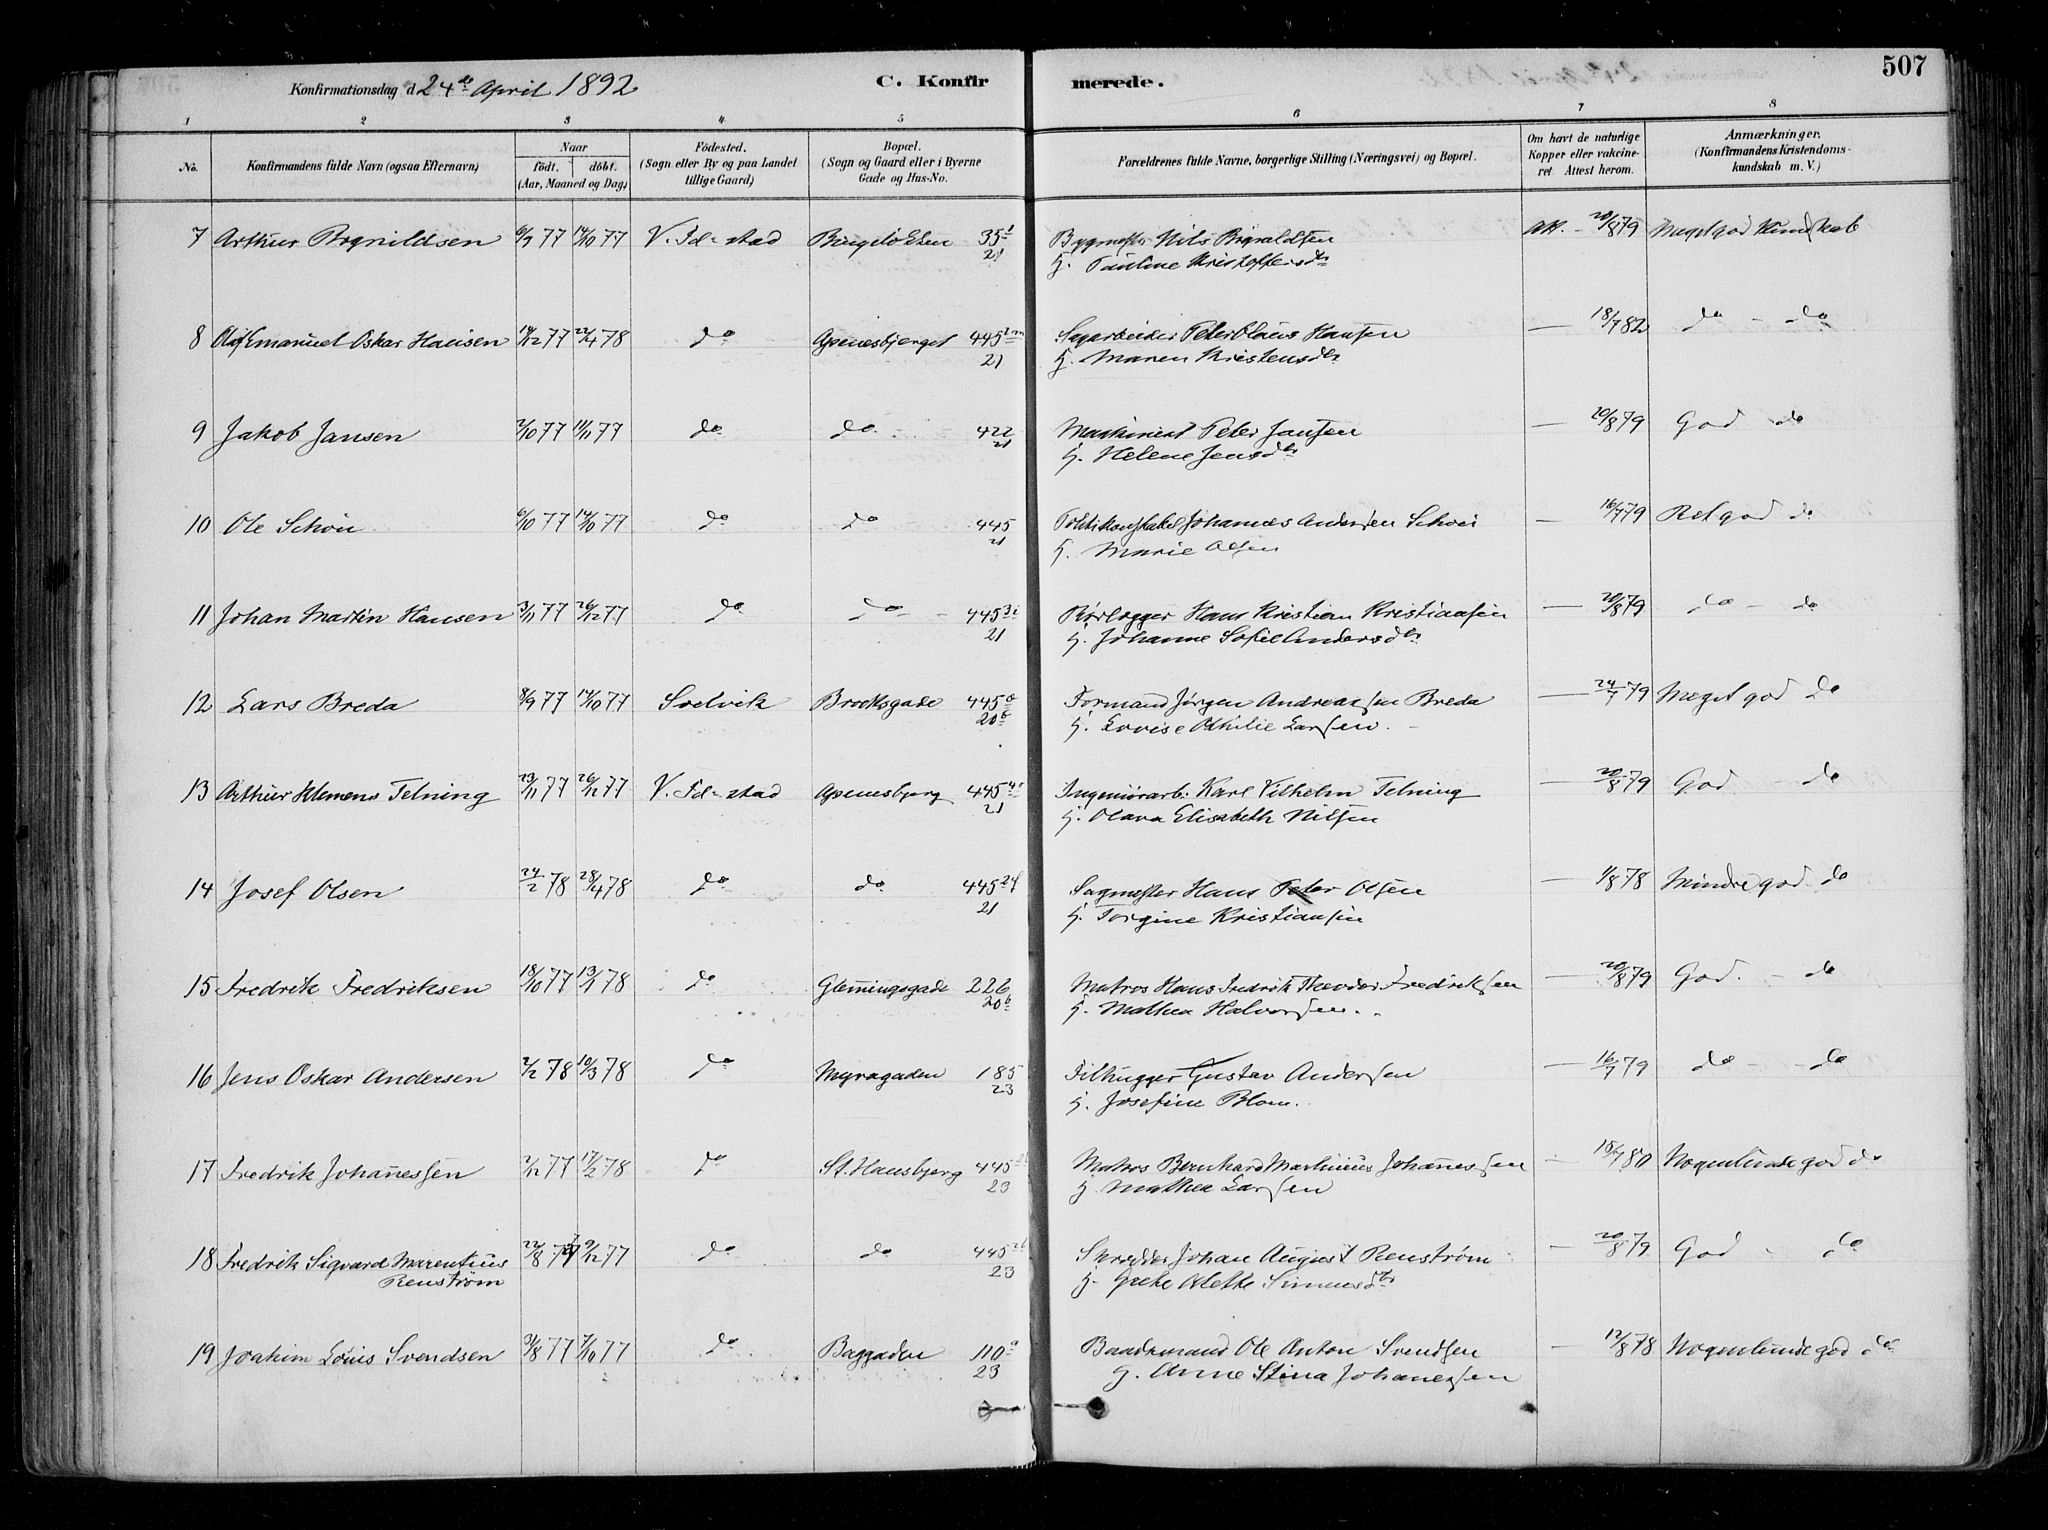 507
Konfirmationsdag d. 24de April 1892
C. Konfirmerede.
1 2 3 4 5 6 7 8
No. Konfirmandens fulde Navn (ogsaa Efternavn) Naar født. døbt. (Aar, Maaned og Dag) Fødested. (Sogn eller By og paa Landet tillige Gaard) Bopæl. (Sogn og Gaard eller i Byerne Gade og Hus-No. Forældrenes fulde Navne, borgerlige Stilling (Næringsvei) og Bopæl. Om havt de naturlige Kopper eller vakcineret. Attest herom. Anmærkninger. (Konfirmandens Kristendomskundskab m. V.)
7 Arthur Brynildsen 6/9 77 14/10 77 V. Fd-stad 35 Bygmester Nils 20/8 79 Meget god Kundskab
21 H. Pauline Kristoffersdr
8 Olaf Emanuel Oskar Hansen 14/12 77 22/4 78 do Apenesbjerget 445 Sagarbeider Peter Olaus Hansen — 18/7 82 do - do
21 H. Maren Kristensdr
9 Jakob Jansen 2/10 77 11/11 77 do do 422 Maskinist Peter Jansen — 20/8 79 God do
21 H. Helene Jensdr
10 Ole Schou 6/10 77 14/10 77 do do 445 Politikonstabel Johannes Andersen Schou — 16/7 79 Ret god do
21 H. Marie Olsen
11 Johan Martin Hansen 3/11 77 26/12 77 do do 445 Rørlægger Hans Kristian Kristiansen — 20/8 79 do - do
21 H. Johanne Sofie Andersdr
12 Lars Breda 8/9 77 14/10 77 Svelvik Brooksgade 445 Formand Jørgen Andreassen Breda — 24/7 79 Meget god do
20b H. Lovise Othilie Larsen.
13 Arthur Klemens Telning 23/11 77 26/12 77 V. Fd-stad Apenesbjerg 445 Ingeniørarb. Karl Vilhelm Telning — 20/8 79 God do
21 H. Olava Elisabeth Nilsen
14 Josef Olsen 24/2 78 28/4 78 do do 445 Sagmester Hans Peter Olsen — 1/8 78 Mindre god do
21 H. Torgine Kristiansen
15 Fredrik Fredriksen 18/10 77 13/1 78 do Glemmingegade 226 Matros Hans Fredrik Theodor Fredriksen — 20/8 79 God. - do
20b H. Mathea Halvorsen.
16 Jens Oskar Andersen 2/2 78 10/3 78 do Myragaden 185 Filhugger Gustav Andersen — 16/7 79 do - do
23 H. Josefine Blom.
17 Fredrik Johannessen 2/12 77 17/2 78 do St. Hansbjerg 445 Matros Bernhard Martinius Johannessen Nogenlunde god do
23 H. Mathea Larsen
18 Fredrik Sigvard Marentius 22/8 77 9/12 77 do do 445 Skrædder Johan August Renstrøm — 20/8 79 God - do
Renstrøm 23 H. Grethe Alette Simensdtr
19 Joakim Louis Svendsen 31/8 77 7/10 77 do Baggaden 110a Baadsmand Ole Anton Svendsen — 12/8 78 Nogenlunde god do
23 H. Anne Stina Johanessen